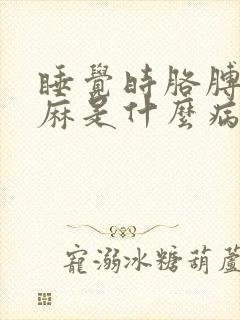 睡覺時胳膊
麻是什麼病
寵溺冰糖葫蘆